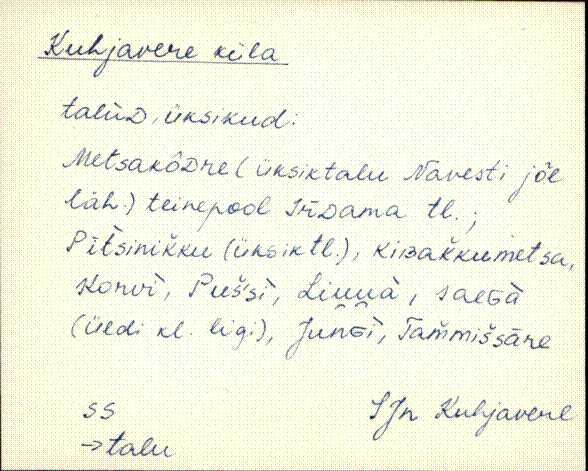 Kuhjavere küla
talùD, üksikud:
Metsakôdre (üksiktalu Navesti jõe
läh.) teinepool Ir̆Dama tl.;
Pìt̀sinik̆ku (üksiktl.), Kiwak̆kumetsa,
Korvì, Puš̀sì, Liuuà, saeGà
(üedi kl. ligi), Jun̂Gì, Tam̆miš̆sāre
SS
SJn Kuhjavere
→talu